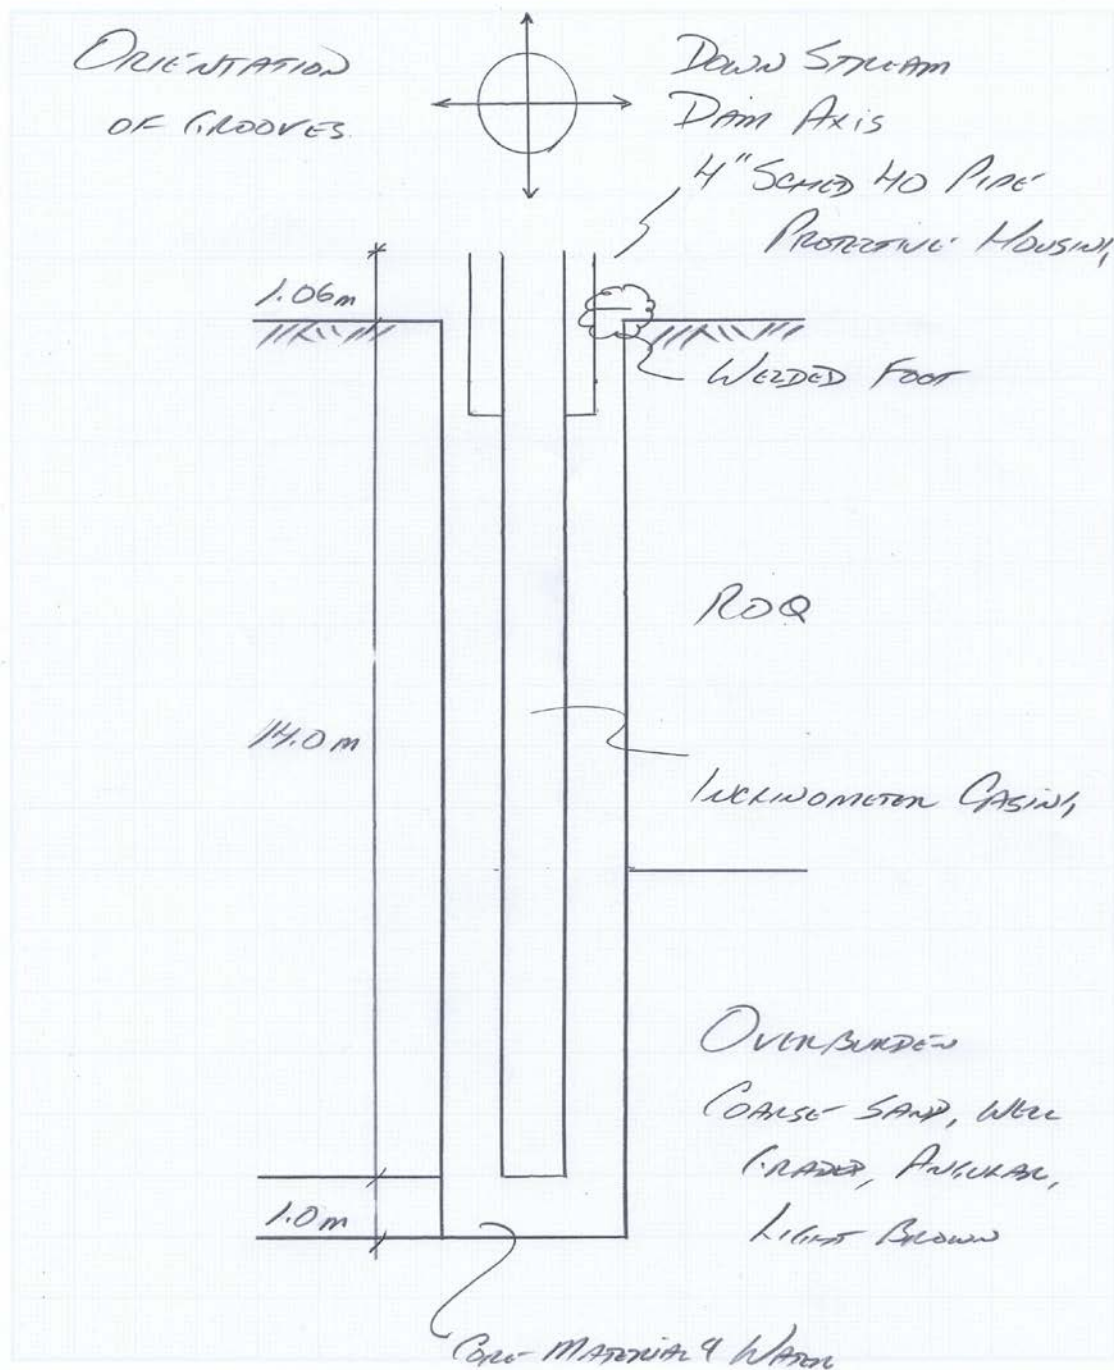 ORIENTATION
OF GROOVES
DOWN STREAM
DAM AXIS
4" SCHED 40 PIPE
PROTECTIVE HOUSING
1.06m
WELDED FOOT
ROQ
14.0m
INCLINOMETER CASING
OVERBURDEN
COARSE SAND, WELL
GRADED, ANGULAR,
LIGHT BROWN
1.0m
CORE MATERIAL & WATER